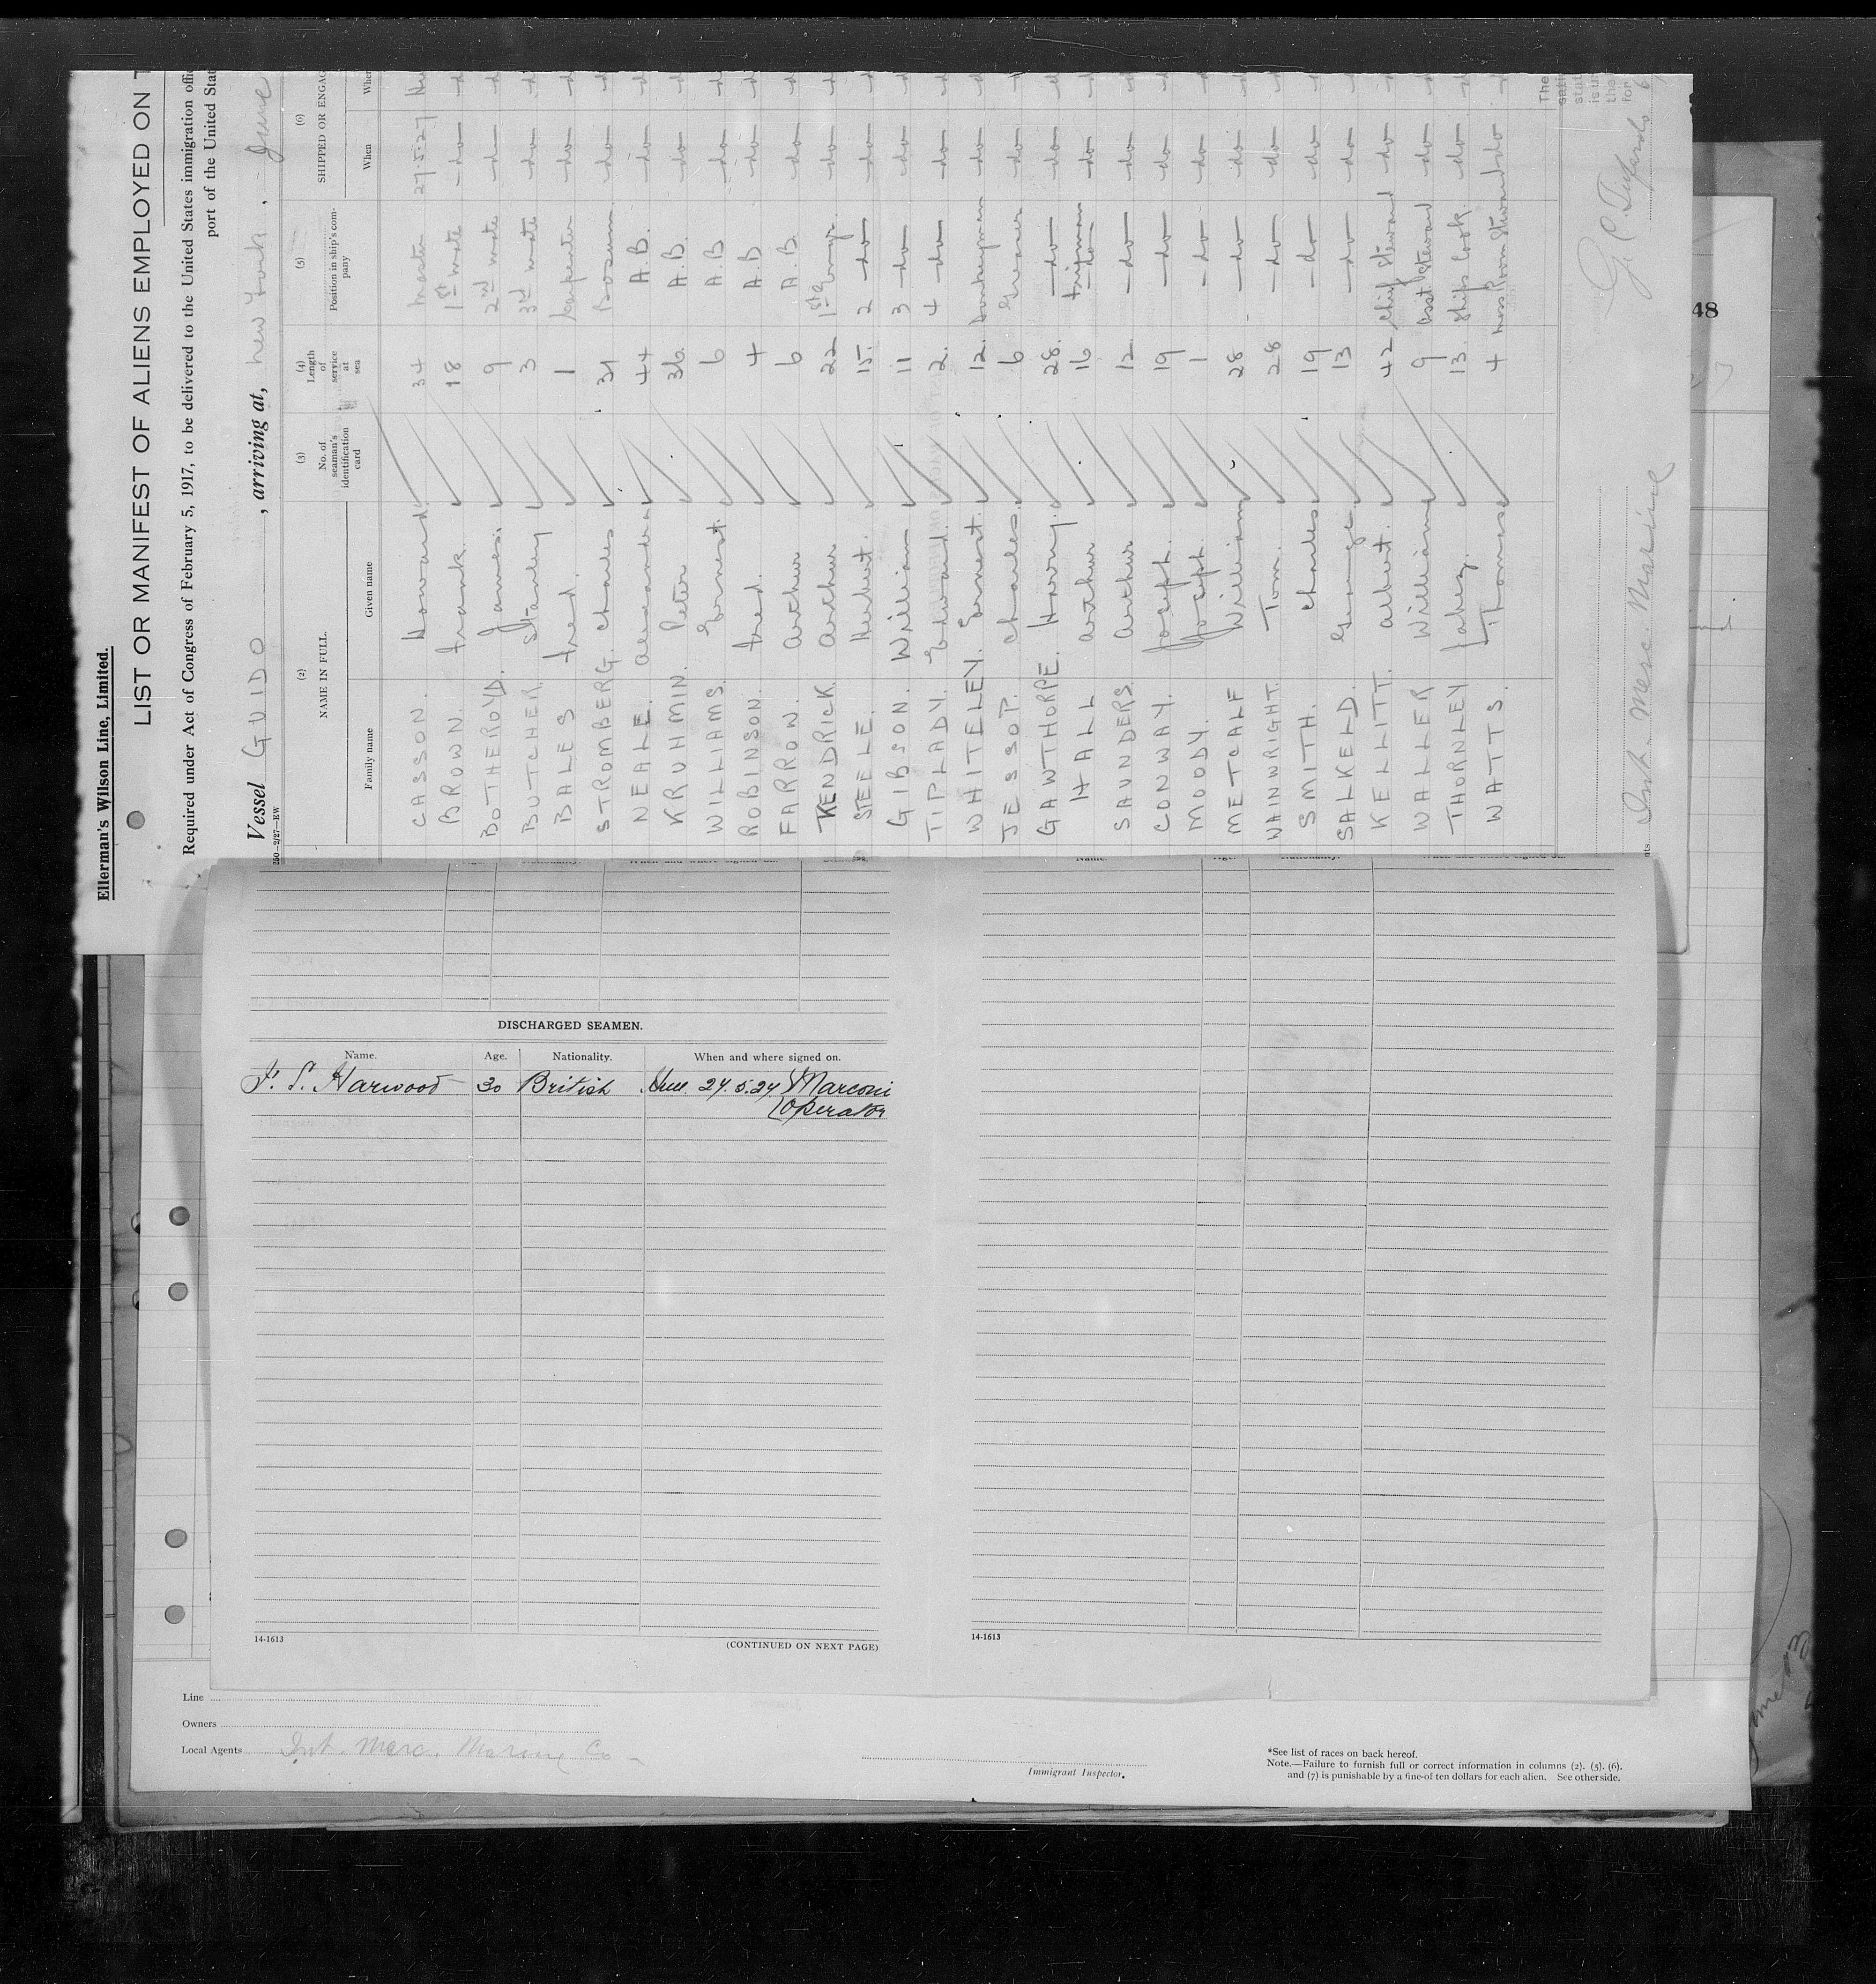 Ellerman's Wilson Line, Limited.
LIST OR MANIFEST OF ALIENS EMPLOYED ON
Required under Act of Congress of February 5, 1917, to be delivered to the United States immigration
port of the United
Vessel GUIDO , arriving at, New York , June
250—2/27—EW
(2) (3) (4) (5) (6)
NAME IN FULL. No. of seaman's identification card Length of service at sea Position in ship's company SHIPPED OR
Family name Given name When
CASSON. Howard 34 Master 27-5-27
BROWN. Frank. 18 1st Mate do
BOTHEROYD. James. 9 2nd Mate do
BUTCHER Stanley 3 3rd Mate do
BALES Fred. 1 Carpenter do
STROMBERG. Charles 31 Bosun do
NEALE. 44 A.B. do
KRUHMIN. Peter 36 A.B. do
WILLIAMS. Ernest. 6 A.B do
ROBINSON. Fred. 4 A.B do
FARROW. Arthur 6 A.B do
KENDRICK. Arthur 22 1st do
STEELE. Herbert. 15. 2 do do
GIBSON. William 11 3 do do
TIPLADY. Edward. 2. 4 do do
WHITELEY. Ernest. 12. Donkeyman do
JESSOP. Charles. 6 Greaser do
GAWTHORPE. Harry. 28. do do
HALL Arthur 16 do
SAUNDERS Arthur 12 do do
CONWAY. Joseph. 19 do do
MOODY. Joseph. 1 do do
METCALF William 28 do do
WAINWRIGHT. Tom. 28 do do
SMITH. Charles 19 do do
SALKELD. George. 13 do do
KELLITT. Albert. 42 Chief Steward do
WALLER William 9 Asst Steward do
THORNLEY Jabez. 13. Ships Cook. do
WATTS. Thomas 4 Mess Room Steward do
Int. Merc. Marine
48
DISCHARGED SEAMEN.
Name. Age. Nationality. When and where signed on.
Harwood 30 British Hull 27.5.27 Marconi
Operator
14-1613
(CONTINUED ON NEXT PAGE)
14-1613
Line
Owners
Local Agents Int. Merc. Marine Co
Immigrant Inspector.
*See list of races on back hereof.
Note.—Failure to furnish full or correct information in columns (2), (5), (6).
and (7) is punishable by a fine of ten dollars for each alien. See other side.